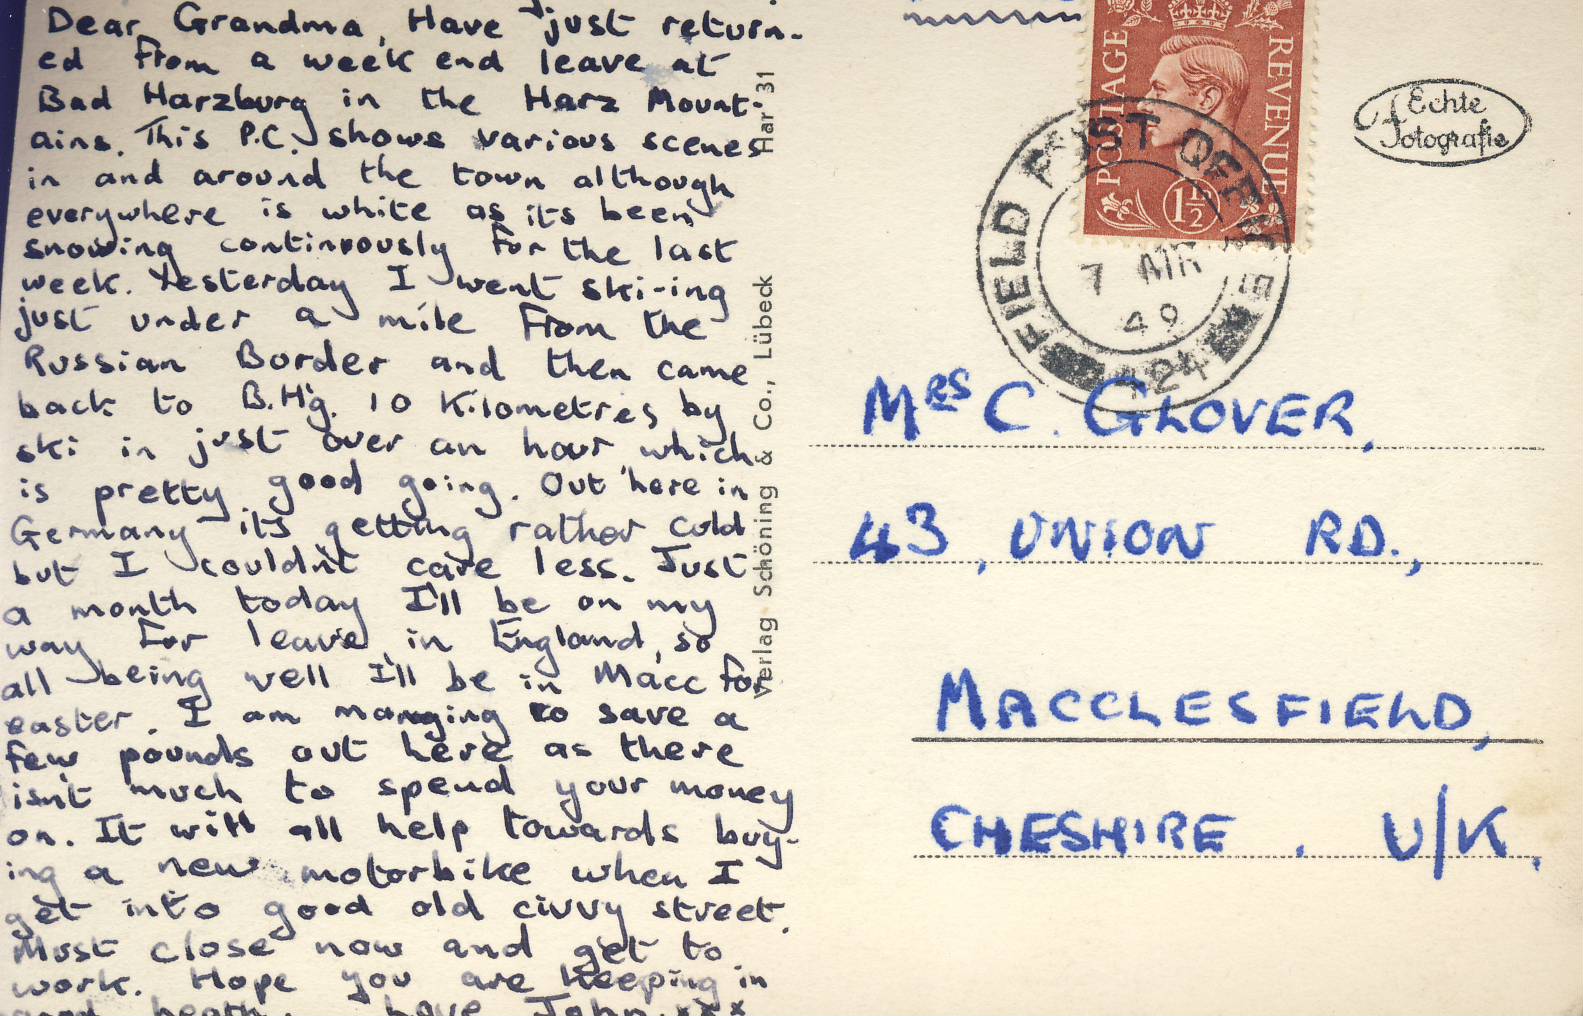 Dear Grandma, Have just return-
ed from a week end leave at
Bad Harzburg in the Harz Mount-
ains. This P.C. shows various scenes
in and around the town although
everywhere is white as its been
snowing continuously for the last
week. Yesterday I went ski-ing
just under a mile from the
Russian Border and then came
back to B.H'g. 10 Kilometres by
ski in just over an hour, which
is pretty good going. Out here in
Germany its getting rather cold
but I couldn't care less. Just
a month today I'll be on my
way for leave in England, so
all being well I'll be in Macc for
easter. I am manging to save a
few pounds out here as there
isn't much to spend your money
on. It will all help towards buy-
ing a new motorbike when I
get into good old civvy street.
Must close now and get to
work. Hope you are keeping in
good heath. Love John.xxx
Verlag Schöning & Co., Lübeck
Har 31
POSTAGE
REVENUE
1½D
FIELD POST OFFICE
7 MR
49
124
Echte
Fotografie
Mrs C. GLOVER,
43, UNION RD.,
MACCLESFIELD,
CHESHIRE. U/K.